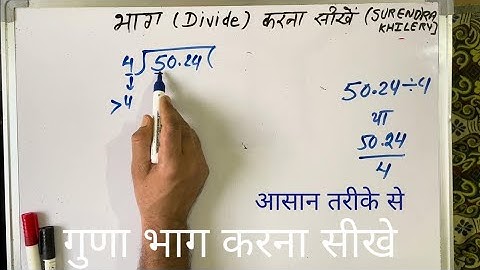 भाग (Divide) करना सीखें (SURENDRA
KHILERY)
4)50.24(
↓
>4
50.24÷4
या
50.24
4
आसान तरीके से
गुणा भाग करना सीखे